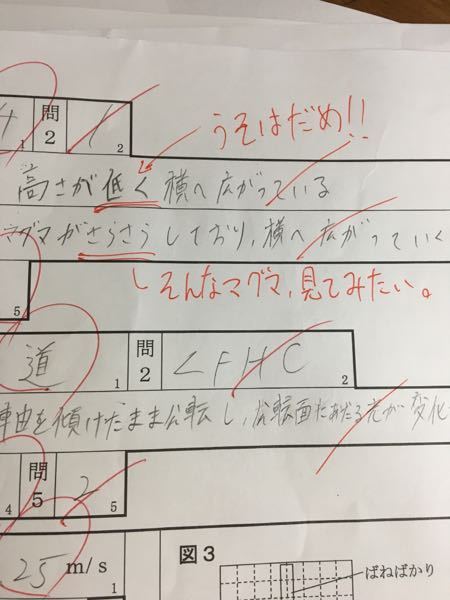 4 1 問2 1 2
うそはだめ!!
高さが低く横へ広がっている
マグマがさらさらしており、横へ広がっていく
5 そんなマグマ、見てみたい。
道 1 問2 ∠FHC 2
軸を傾けたまま公転し、公転面
4 問5 2 5
25 m/s 1 図3
ばねばかり